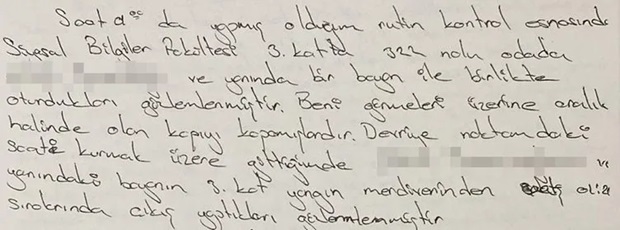 Saat 2⁰⁰ da yapmış olduğum rutin kontrol esnasında
Siyasal Bilgiler Fakültesi 3. katta 322 nolu odada
ve yanında bir bayan ile birlikte
oturdukları gözlemlenmiştir. Beni görmeleri üzerine aralık
halinde olan kapıyı kapamışlardır. Devriye noktamdaki
saati kurmak üzere gittiğimde ve
yanındaki bayanın 3. kat yangın merdiveninden
sıralarında çıkış yaptıkları gözlemlenmiştir